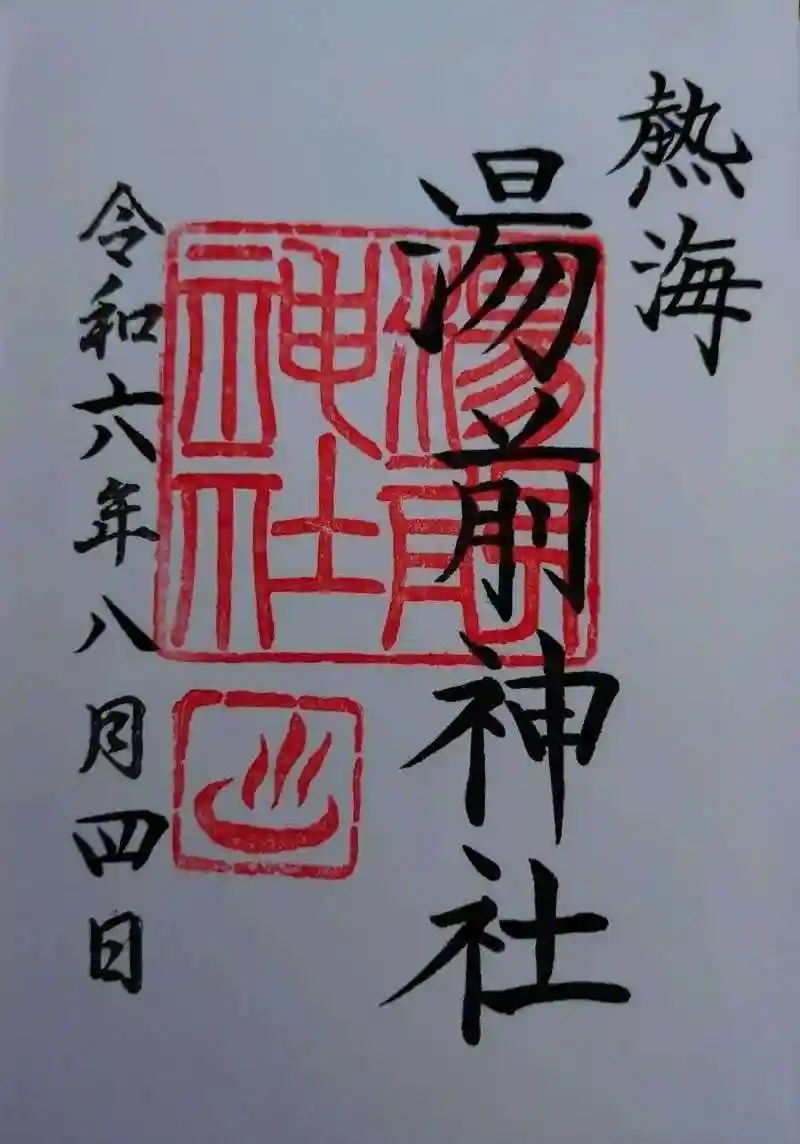 熱海
湯前神社
湯前
神社
令和六年八月四日